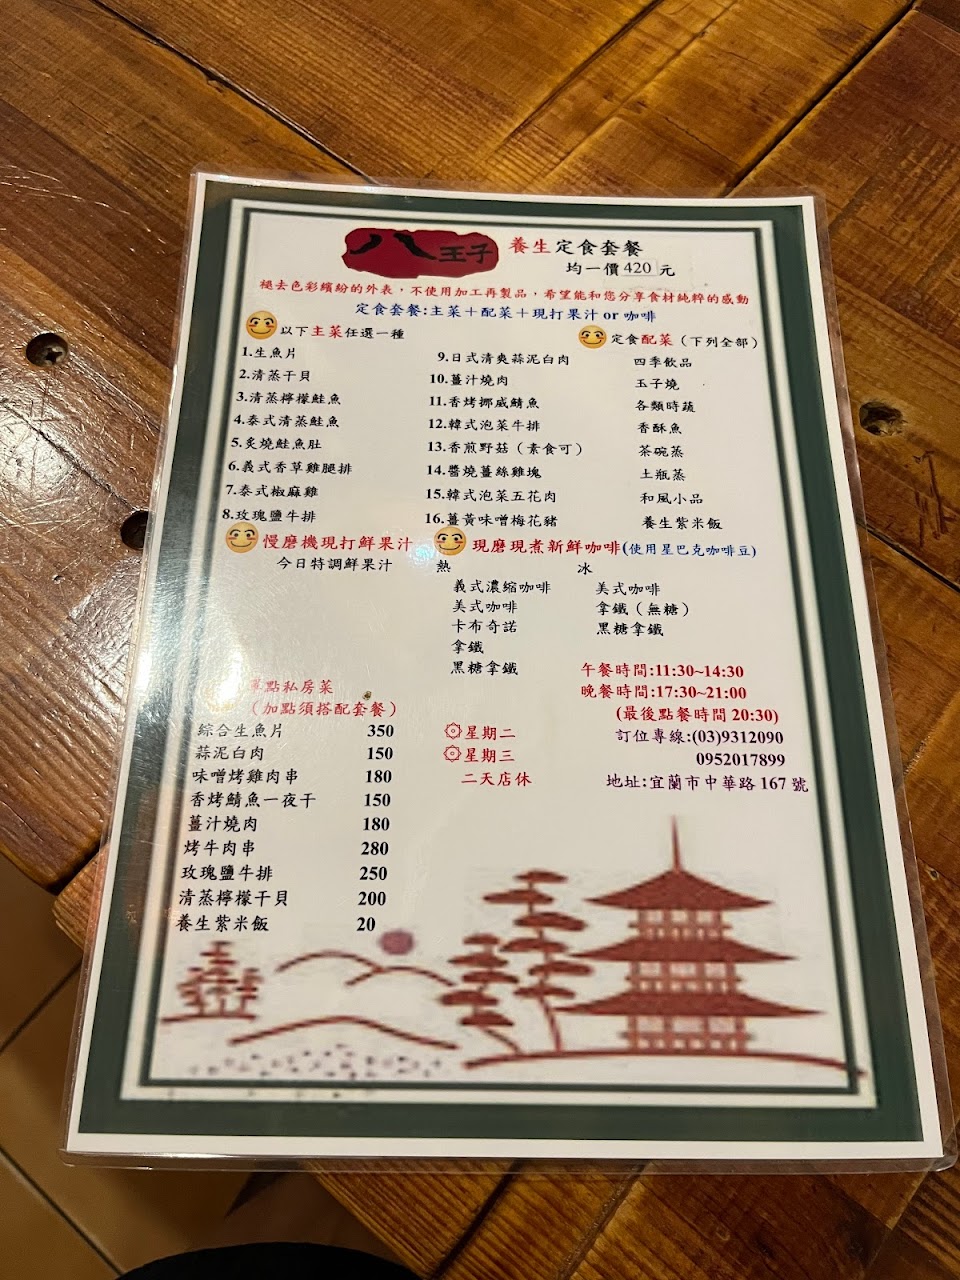 八王子 養生定食套餐
均一價420元
褪去色彩繽紛的外表，不使用加工再製品，希望能和您分享食材純粹的感動
定食套餐:主菜＋配菜＋現打果汁 or 咖啡
以下主菜任選一種
1.生魚片
2.清蒸干貝
3.清蒸檸檬鮭魚
4.泰式清蒸鮭魚
5.炙燒鮭魚肚
6.義式香草雞腿排
7.泰式椒麻雞
8.玫瑰鹽牛排
9.日式清爽蒜泥白肉
10.薑汁燒肉
11.香烤挪威鯖魚
12.韓式泡菜牛排
13.香煎野菇（素食可）
14.醬燒薑絲雞塊
15.韓式泡菜五花肉
16.薑黃味噌梅花豬
定食配菜（下列全部）
四季飲品
玉子燒
各類時蔬
香酥魚
茶碗蒸
土瓶蒸
和風小品
養生紫米飯
慢磨機現打鮮果汁
今日特調鮮果汁
現磨現煮新鮮咖啡(使用星巴克咖啡豆)
熱
義式濃縮咖啡
美式咖啡
卡布奇諾
拿鐵
黑糖拿鐵
冰
美式咖啡
拿鐵（無糖）
黑糖拿鐵
單點私房菜
（加點須搭配套餐）
綜合生魚片 350
蒜泥白肉 150
味噌烤雞肉串 180
香烤鯖魚一夜干 150
薑汁燒肉 180
烤牛肉串 280
玫瑰鹽牛排 250
清蒸檸檬干貝 200
養生紫米飯 20
星期二
星期三
二天店休
午餐時間:11:30~14:30
晚餐時間:17:30~21:00
(最後點餐時間 20:30)
訂位專線:(03)9312090
0952017899
地址:宜蘭市中華路 167 號